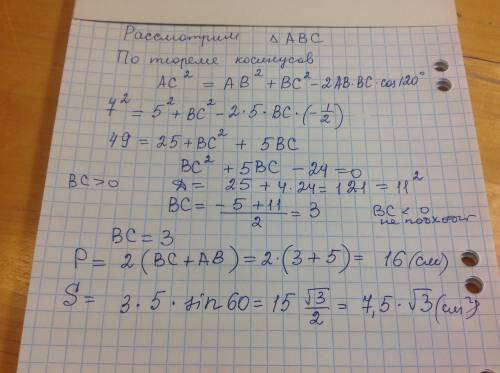 Рассмотрим △ ABC
По теореме косинусов
AC² = AB² + BC² - 2AB·BC·cos120°
7² = 5² + BC² - 2·5·BC·(-1/2)
49 = 25 + BC² + 5BC
BC² + 5BC - 24 = 0
BC > 0 D = 25 + 4·24 = 121 = 11²
BC = (-5 + 11)/2 = 3 BC < 0 не подходит
BC = 3
P = 2(BC + AB) = 2·(3 + 5) = 16 (см)
S = 3·5·sin 60 = 15 √3/2 = 7,5·√3 (см²)